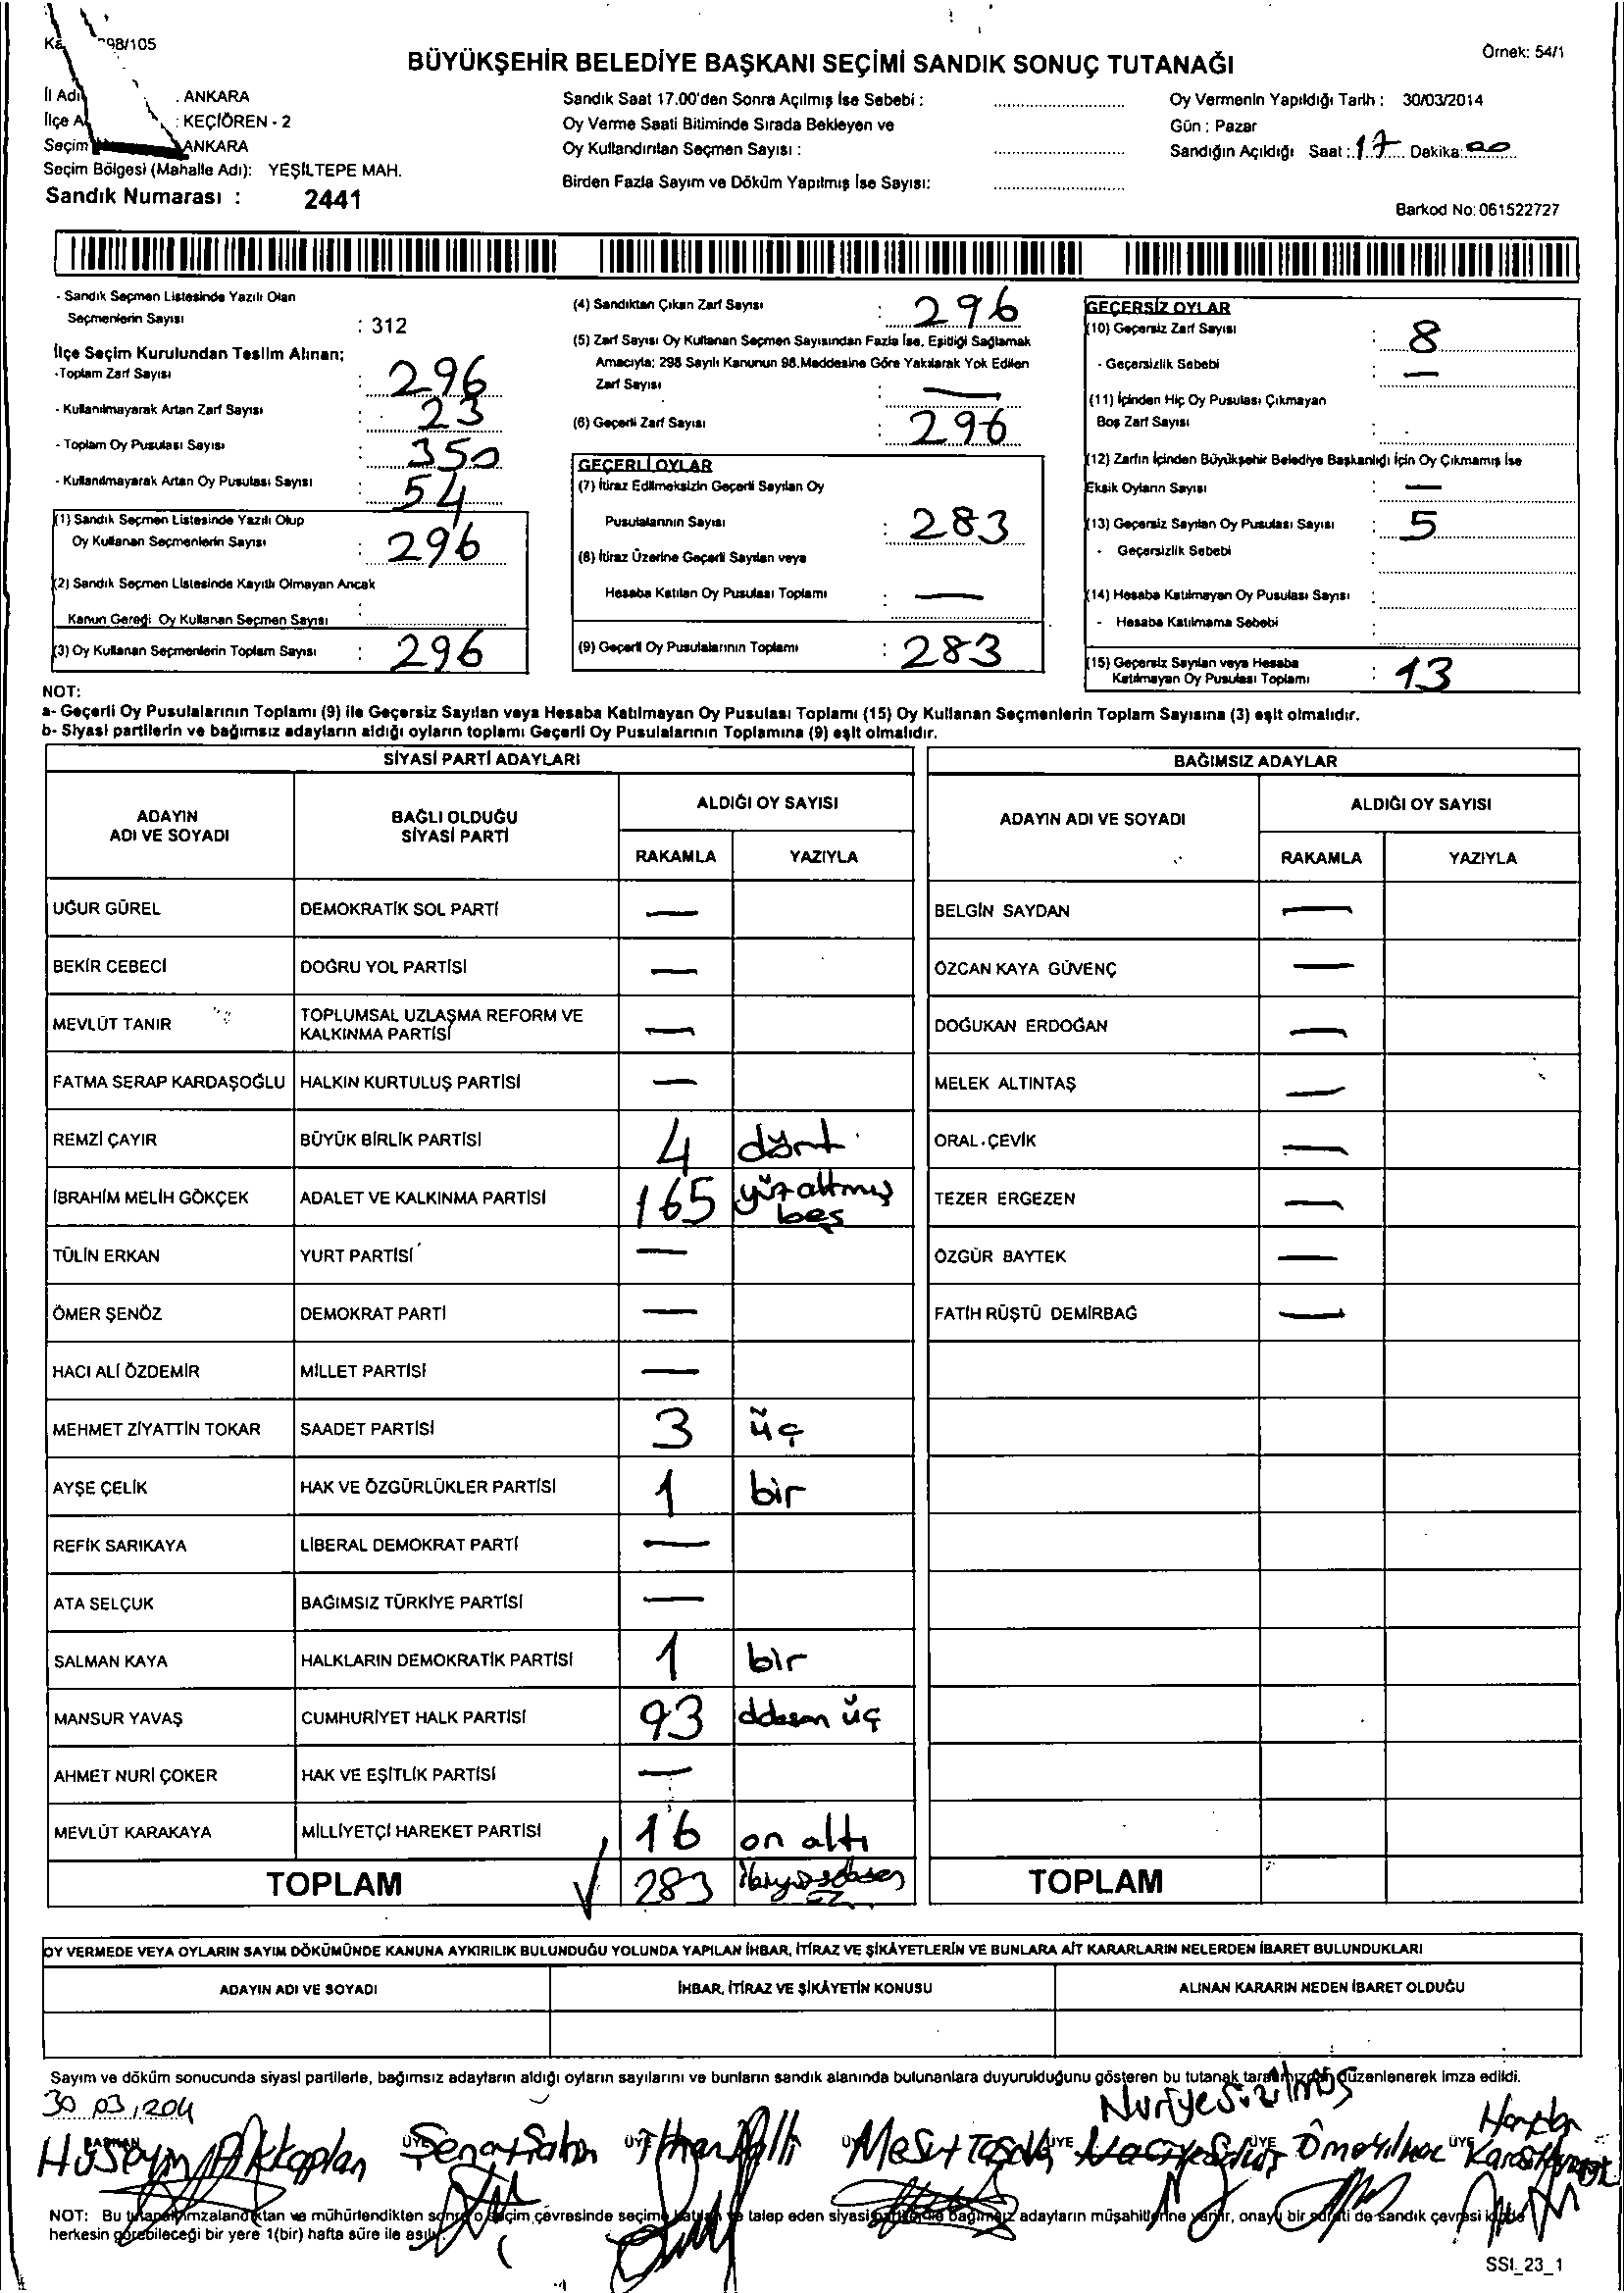 98/105
Örnek: 54/1
BÜYÜKŞEHİR BELEDİYE BAŞKANI SEÇİMİ SANDIK SONUÇ TUTANAĞI
İl Adı : ANKARA
: KEÇİÖREN - 2
Seçim ANKARA
Seçim Bölgesi (Mahalle Adı): YEŞİLTEPE MAH.
Sandık Numarası : 2441
Sandık Saat 17.00'den Sonra Açılmış İse Sebebi :
Oy Verme Saati Bitiminde Sırada Bekleyen ve
Oy Kullandırılan Seçmen Sayısı :
Birden Fazla Sayım ve Döküm Yapılmış İse Sayısı:
Oy Vermenin Yapıldığı Tarih : 30/03/2014
Gün : Pazar
Sandığın Açıldığı Saat : 17 Dakika: 00
Barkod No: 061522727
- Sandık Seçmen Listesinde Yazılı Olan
Seçmenlerin Sayısı : 312
İlçe Seçim Kurulundan Teslim Alınan;
- Toplam Zarf Sayısı : 296
- Kullanılmayarak Artan Zarf Sayısı : 23
- Toplam Oy Pusulası Sayısı : 350
- Kullanılmayarak Artan Oy Pusulası Sayısı : 54
(1) Sandık Seçmen Listesinde Yazılı Olup
Oy Kullanan Seçmenlerin Sayısı : 296
(2) Sandık Seçmen Listesinde Kayıtlı Olmayan Ancak
Kanun Gereği Oy Kullanan Seçmen Sayısı :
(3) Oy Kullanan Seçmenlerin Toplam Sayısı : 296
(4) Sandıktan Çıkan Zarf Sayısı : 296
(5) Zarf Sayısı Oy Kullanan Seçmen Sayısından Fazla İse, Eşitliği Sağlamak
Amacıyla; 298 Sayılı Kanunun 98.Maddesine Göre Yakılarak Yok Edilen
Zarf Sayısı : —
(6) Geçerli Zarf Sayısı : 296
GEÇERLİ OYLAR
(7) İtiraz Edilmeksizin Geçerli Sayılan Oy
Pusulalarının Sayısı : 283
(8) İtiraz Üzerine Geçerli Sayılan veya
Hesaba Katılan Oy Pusulası Toplamı : —
(9) Geçerli Oy Pusulalarının Toplamı : 283
GEÇERSİZ OYLAR
(10) Geçersiz Zarf Sayısı : 8
- Geçersizlik Sebebi : —
(11) İçinden Hiç Oy Pusulası Çıkmayan
Boş Zarf Sayısı :
(12) Zarfın İçinden Büyükşehir Belediye Başkanlığı İçin Oy Çıkmamış İse
Eksik Oyların Sayısı : —
(13) Geçersiz Sayılan Oy Pusulası Sayısı : 5
- Geçersizlik Sebebi :
(14) Hesaba Katılmayan Oy Pusulası Sayısı :
- Hesaba Katılmama Sebebi :
(15) Geçersiz Sayılan veya Hesaba
Katılmayan Oy Pusulası Toplamı : 13
NOT:
a- Geçerli Oy Pusulalarının Toplamı (9) ile Geçersiz Sayılan veya Hesaba Katılmayan Oy Pusulası Toplamı (15) Oy Kullanan Seçmenlerin Toplam Sayısına (3) eşit olmalıdır.
b- Siyasi partilerin ve bağımsız adayların aldığı oyların toplamı Geçerli Oy Pusulalarının Toplamına (9) eşit olmalıdır.
SİYASİ PARTİ ADAYLARI
ADAYIN ADI VE SOYADI BAĞLI OLDUĞU SİYASİ PARTİ ALDIĞI OY SAYISI
RAKAMLA YAZIYLA
UĞUR GÜREL DEMOKRATİK SOL PARTİ —
BEKİR CEBECİ DOĞRU YOL PARTİSİ —
MEVLÜT TANIR TOPLUMSAL UZLAŞMA REFORM VE KALKINMA PARTİSİ —
FATMA SERAP KARDAŞOĞLU HALKIN KURTULUŞ PARTİSİ —
REMZİ ÇAYIR BÜYÜK BİRLİK PARTİSİ 4 dört
İBRAHİM MELİH GÖKÇEK ADALET VE KALKINMA PARTİSİ 165 yüz altmış beş
TÜLİN ERKAN YURT PARTİSİ —
ÖMER ŞENÖZ DEMOKRAT PARTİ —
HACI ALİ ÖZDEMİR MİLLET PARTİSİ —
MEHMET ZİYATTİN TOKAR SAADET PARTİSİ 3 üç
AYŞE ÇELİK HAK VE ÖZGÜRLÜKLER PARTİSİ 1 bir
REFİK SARIKAYA LİBERAL DEMOKRAT PARTİ —
ATA SELÇUK BAĞIMSIZ TÜRKİYE PARTİSİ —
SALMAN KAYA HALKLARIN DEMOKRATİK PARTİSİ 1 bir
MANSUR YAVAŞ CUMHURİYET HALK PARTİSİ 93 üç
AHMET NURİ ÇOKER HAK VE EŞİTLİK PARTİSİ —
MEVLÜT KARAKAYA MİLLİYETÇİ HAREKET PARTİSİ 16 on altı
TOPLAM 283
BAĞIMSIZ ADAYLAR
ADAYIN ADI VE SOYADI ALDIĞI OY SAYISI
RAKAMLA YAZIYLA
BELGİN SAYDAN —
ÖZCAN KAYA GÜVENÇ —
DOĞUKAN ERDOĞAN —
MELEK ALTINTAŞ —
ORAL ÇEVİK —
TEZER ERGEZEN —
ÖZGÜR BAYTEK —
FATİH RÜŞTÜ DEMİRBAĞ —
TOPLAM
OY VERMEDE VEYA OYLARIN SAYIM DÖKÜMÜNDE KANUNA AYKIRILIK BULUNDUĞU YOLUNDA YAPILAN İHBAR, İTİRAZ VE ŞİKÂYETLERİN VE BUNLARA AİT KARARLARIN NELERDEN İBARET BULUNDUKLARI
ADAYIN ADI VE SOYADI İHBAR, İTİRAZ VE ŞİKÂYETİN KONUSU ALINAN KARARIN NEDEN İBARET OLDUĞU
Sayım ve döküm sonucunda siyasi partilerle, bağımsız adayların aldığı oyların sayılarını ve bunların sandık alanında bulunanlara duyurulduğunu gösteren bu tutanak tarafımızdan düzenlenerek imza edildi.
30 03.2014
BAŞKAN ÜYE ÜYE ÜYE ÜYE ÜYE ÜYE
Hüseyin Akkaplan
NOT: Bu tutanak imzalandıktan ve mühürlendikten sonra o seçim çevresinde seçime katılan ve talep eden siyasi partilerle bağımsız adayların müşahitlerine verilir, onaylı bir sureti de sandık çevresi içinde
herkesin görebileceği bir yere 1(bir) hafta süre ile asılır.
SSI_23_1